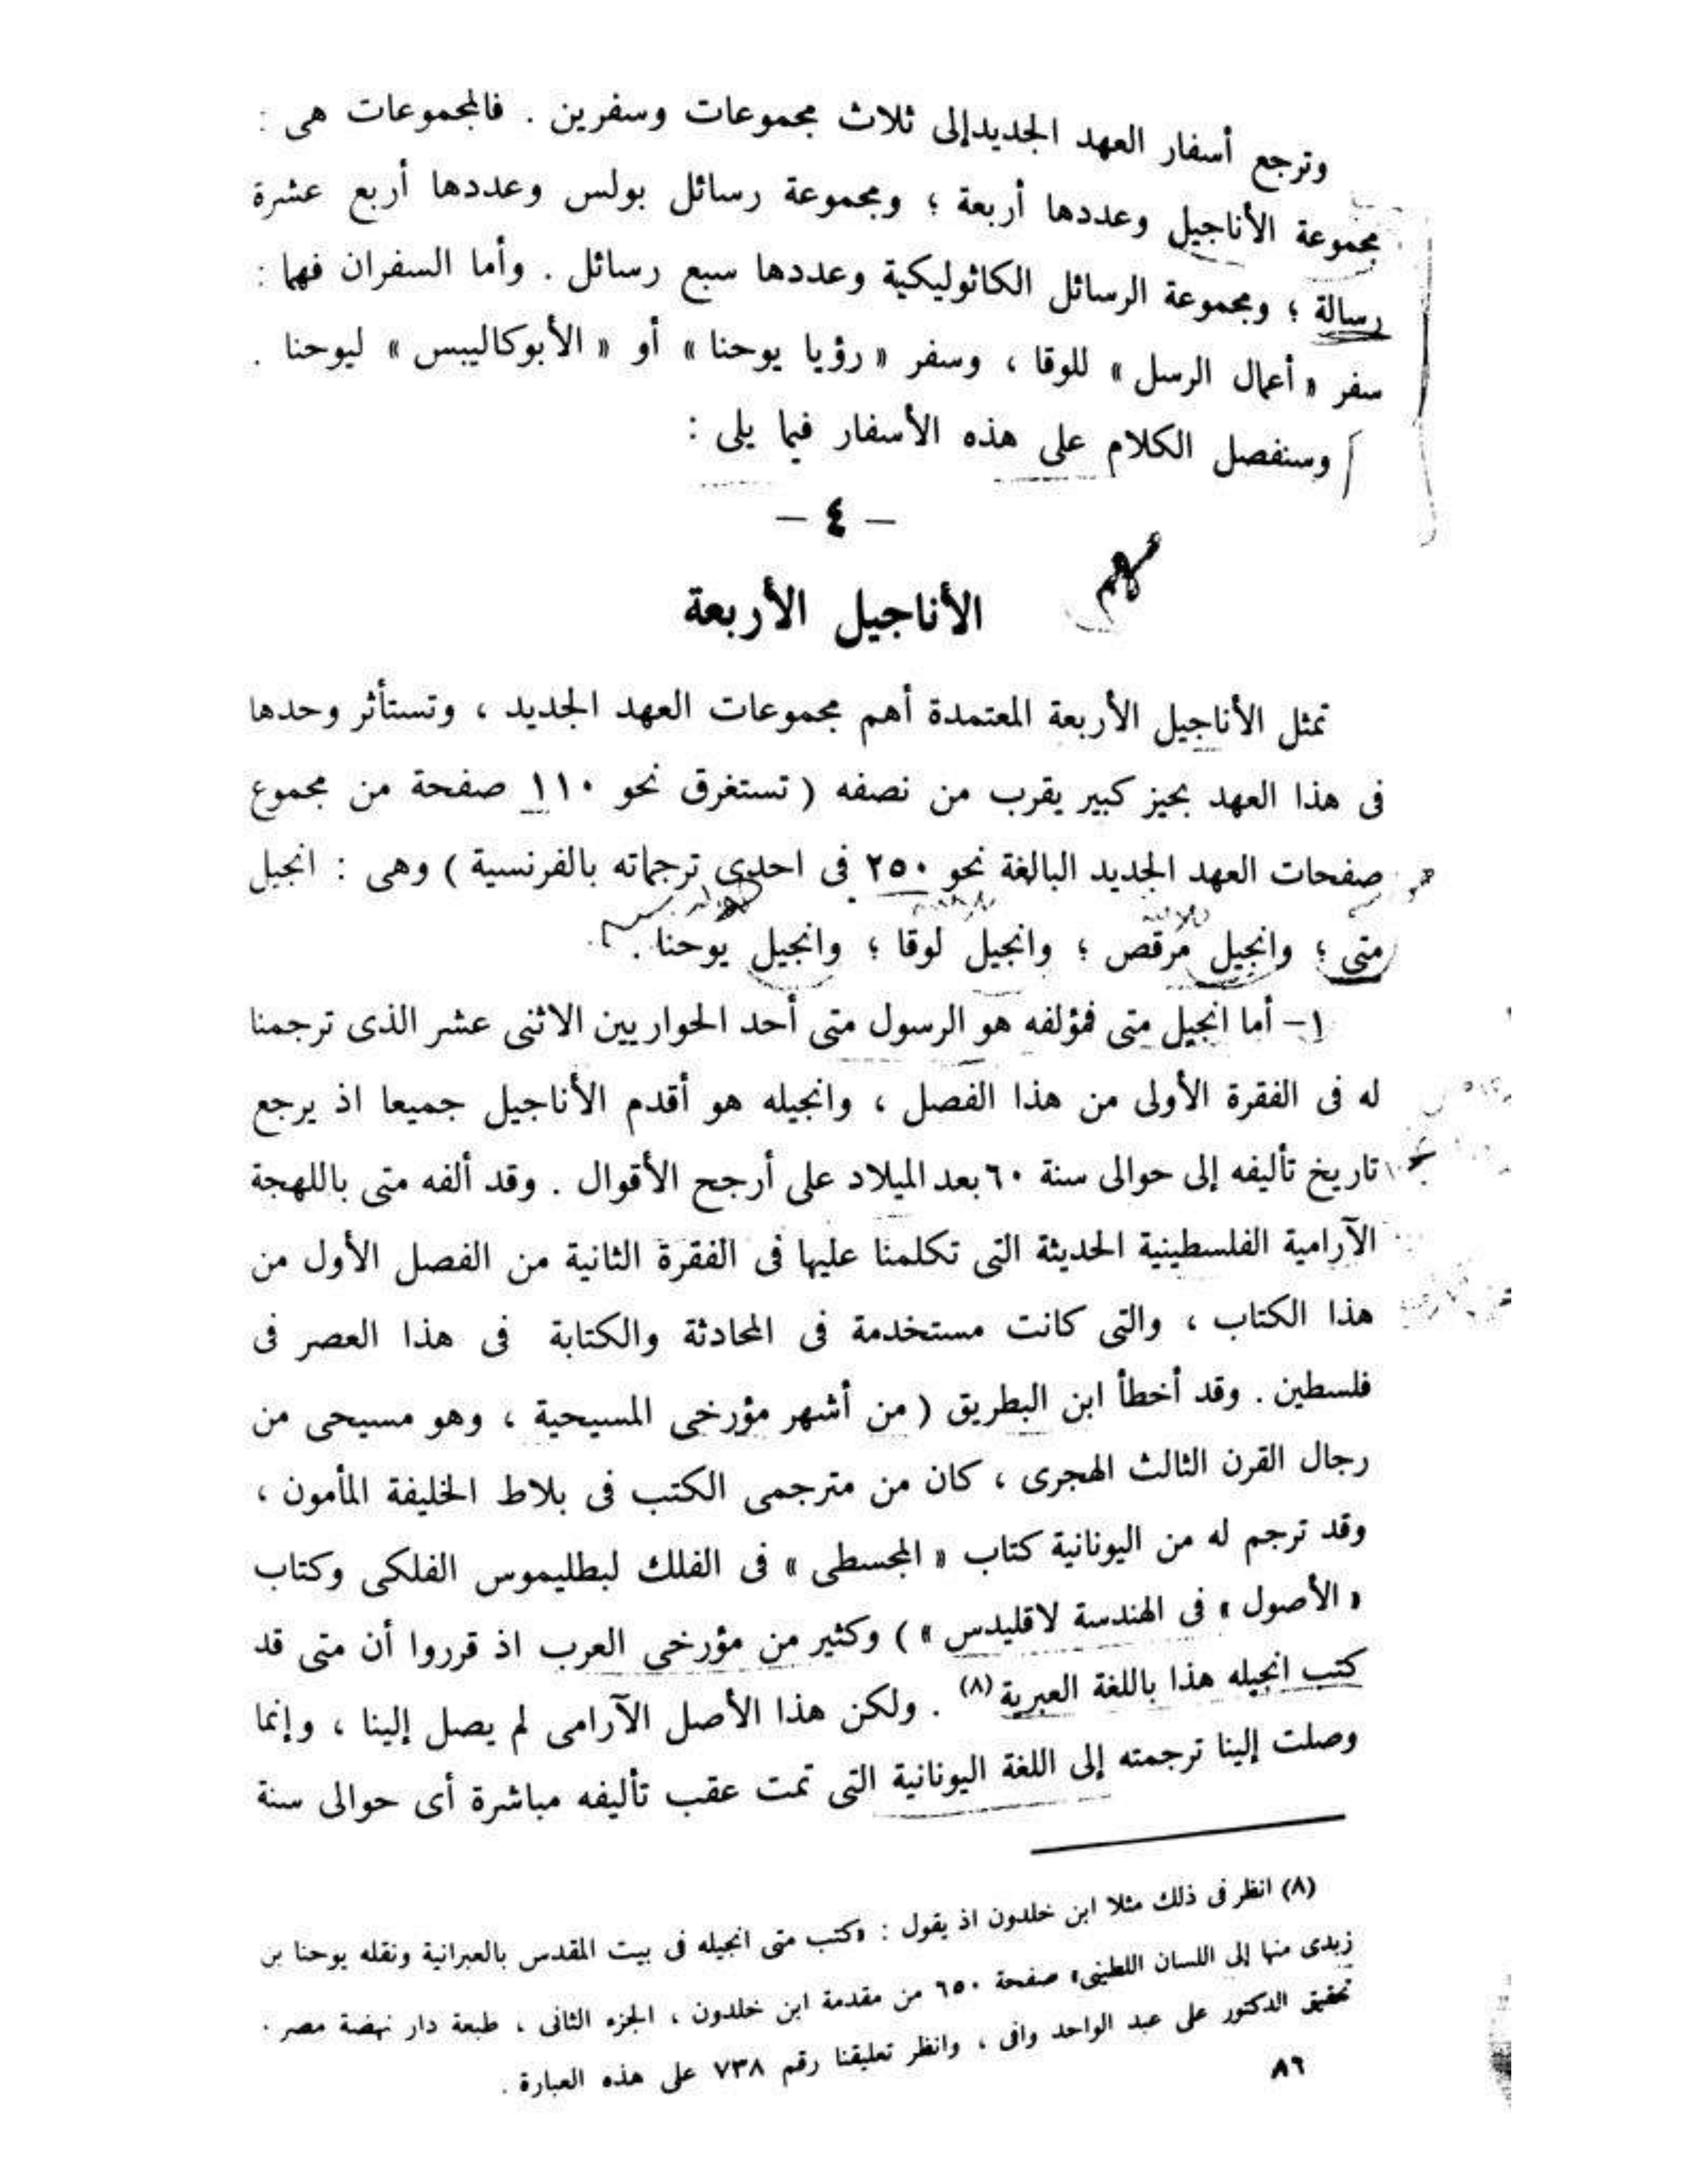 وترجع أسفار العهد الجديد إلى ثلاث مجموعات وسفرين . فالمجموعات هى :
مجموعة الأناجيل وعددها أربعة ؛ ومجموعة رسائل بولس وعددها أربع عشرة
رسالة ؛ ومجموعة الرسائل الكاثوليكية وعددها سبع رسائل . وأما السفران فهما :
سفر « أعمال الرسل » للوقا ، وسفر « رؤيا يوحنا » أو « الأبوكاليبس » ليوحنا .
وسنفصل الكلام على هذه الأسفار فيما يلى :
– ٤ –
الأناجيل الأربعة
تمثل الأناجيل الأربعة المعتمدة أهم مجموعات العهد الجديد ، وتستأثر وحدها
فى هذا العهد بحيز كبير يقرب من نصفه ( تستغرق نحو ١١٠ صفحة من مجموع
صفحات العهد الجديد البالغة نحو ٢٥٠ فى احدى ترجماته بالفرنسية ) وهى : انجيل
متى ؛ وانجيل مرقص ؛ وانجيل لوقا ؛ وانجيل يوحنا .
١– أما انجيل متى فمؤلفه هو الرسول متى أحد الحواريين الاثنى عشر الذى ترجمنا
له فى الفقرة الأولى من هذا الفصل ، وانجيله هو أقدم الأناجيل جميعا اذ يرجع
تاريخ تأليفه إلى حوالى سنة ٦٠ بعد الميلاد على أرجح الأقوال . وقد ألفه متى باللهجة
الآرامية الفلسطينية الحديثة التى تكلمنا عليها فى الفقرة الثانية من الفصل الأول من
هذا الكتاب ، والتى كانت مستخدمة فى المحادثة والكتابة فى هذا العصر فى
فلسطين . وقد أخطأ ابن البطريق ( من أشهر مؤرخى المسيحية ، وهو مسيحى من
رجال القرن الثالث الهجرى ، كان من مترجمى الكتب فى بلاط الخليفة المأمون ،
وقد ترجم له من اليونانية كتاب « المجسطى » فى الفلك لبطليموس الفلكى وكتاب
« الأصول » فى الهندسة لاقليدس » ) وكثير من مؤرخى العرب اذ قرروا أن متى قد
كتب انجيله هذا باللغة العبرية (٨) . ولكن هذا الأصل الآرامى لم يصل إلينا ، وإنما
وصلت إلينا ترجمته إلى اللغة اليونانية التى تمت عقب تأليفه مباشرة أى حوالى سنة
(٨) انظر فى ذلك مثلا ابن خلدون اذ يقول : «كتب متى انجيله فى بيت المقدس بالعبرانية ونقله يوحنا بن
زبدى منها إلى اللسان اللطينى» صفحة ٦٥٠ من مقدمة ابن خلدون ، الجزء الثانى ، طبعة دار نهضة مصر .
تحقيق الدكتور على عبد الواحد وافى ، وانظر تعليقنا رقم ٧٣٨ على هذه العبارة .
٨٦